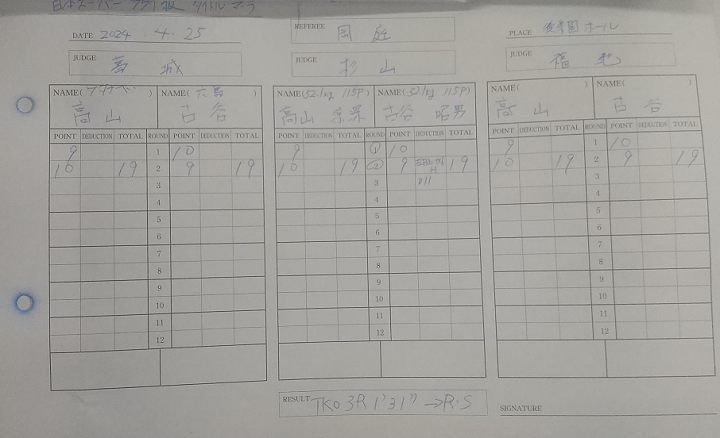 日本スーパーフライ級 タイトルマッチ
DATE 2024.4.25
REFEREE
PLACE 後楽園ホール
JUDGE
JUDGE 杉山
JUDGE 福地
NAME( ) NAME(六島)
高山 古谷
POINT DEDUCTION TOTAL ROUND POINT DEDUCTION TOTAL
9 1 10
10 19 2 9 19
3
4
5
6
7
8
9
10
11
12
NAME(52.1kg 115P) NAME(52.1kg 115P)
高山 涼深 古谷 昭男
POINT DEDUCTION TOTAL ROUND POINT DEDUCTION TOTAL
9 1 10
10 19 2 9 19
3
4
5
6
7
8
9
10
11
12
NAME( ) NAME( )
高山 古谷
POINT DEDUCTION TOTAL ROUND POINT DEDUCTION TOTAL
9 1 10
10 19 2 9 19
3
4
5
6
7
8
9
10
11
12
RESULT TKO 3R 1'31" → R.S
SIGNATURE